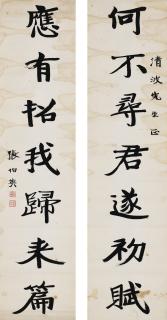 何不尋君遂初賦
清波先生正
應有招我歸來篇
張伯英